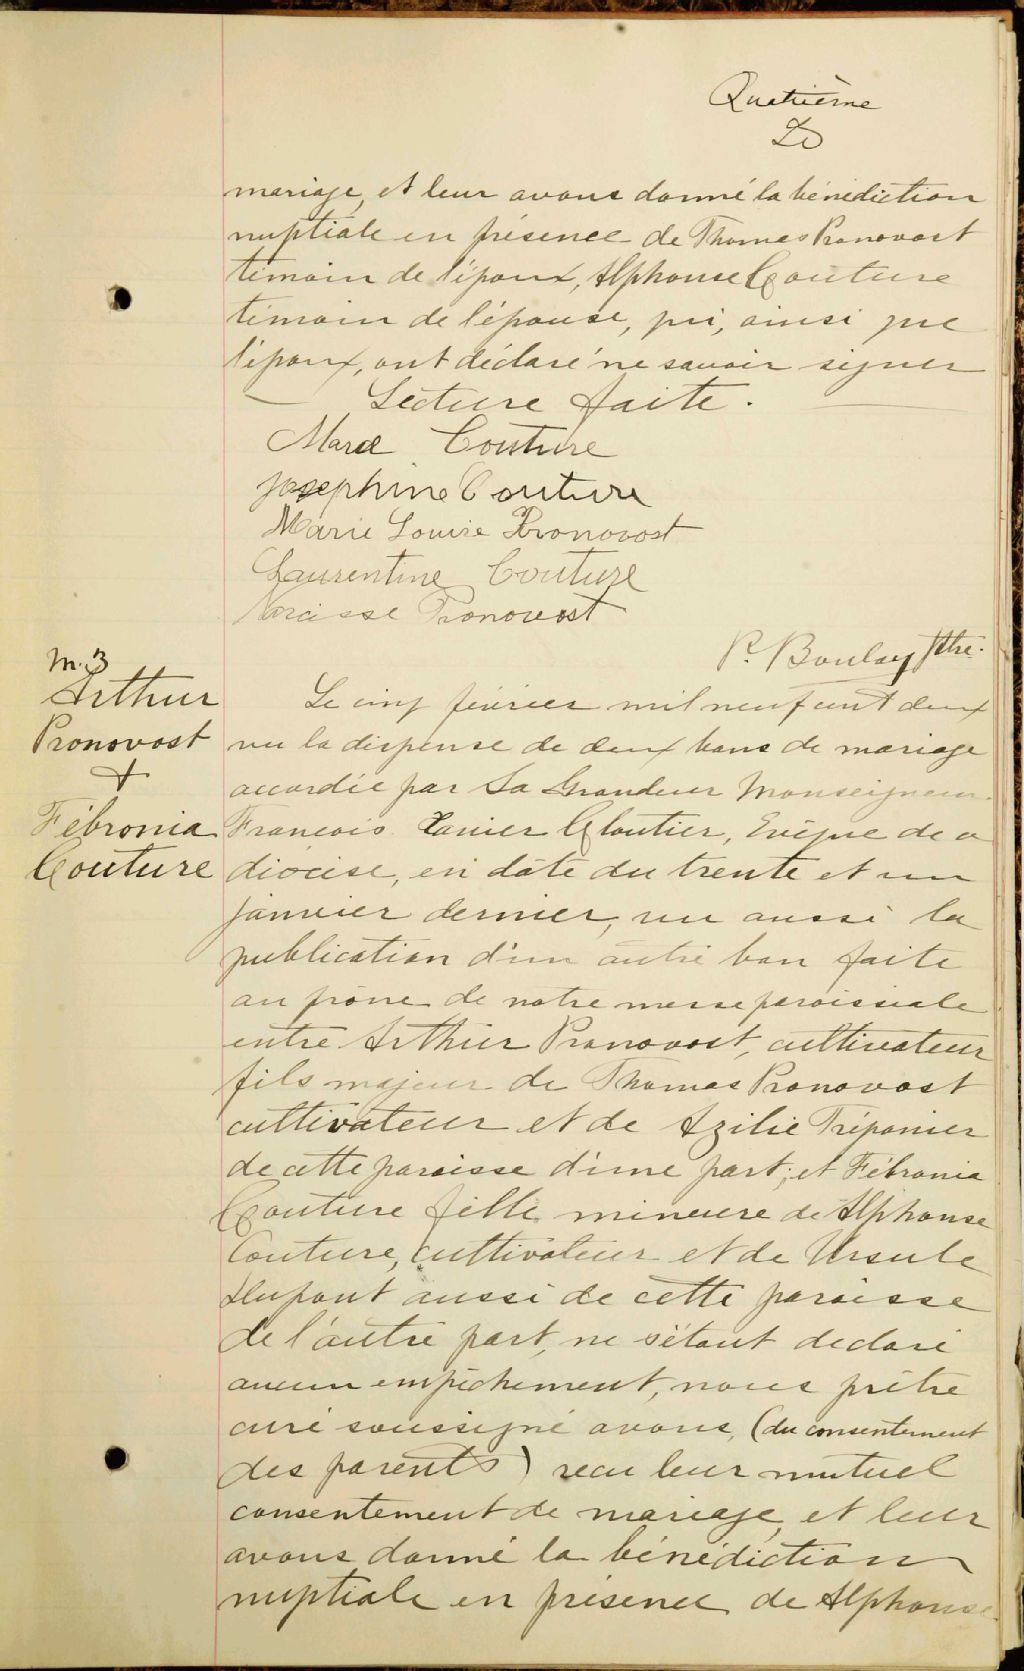 Quatrième
mariage, et leur avons donné la bénédiction
nuptiale en présence de Thomas Pronovost
témoin de l'époux, Alphonse Couture
témoin de l'épouse, qui, ainsi que
l'époux, ont déclaré ne savoir signer
Lecture faite.
Marie Couture
Josephine Couture
Marie Louise Pronovost
Laurentine Couture
Narcisse Pronovost
P. Boulay Ptre.
M. 3
Arthur
Pronovost
+
Fébronia
Couture
Le cinq février mil neuf cent deux
vu la dispense de deux bans de mariage
accordée par Sa Grandeur Monseigneur
François Xavier Cloutier, Evêque de ce
diocèse, en date du trente et un
janvier dernier, vu aussi la
publication d'un autre ban faite
au prône de notre messe paroissiale
entre Arthur Pronovost, cultivateur
fils majeur de Thomas Pronovost
cultivateur et de Azilie Trépanier
de cette paroisse d'une part; et Fébronia
Couture fille mineure de Alphonse
Couture, cultivateur et de Ursule
Dupont aussi de cette paroisse
de l'autre part, ne s'étant déclaré
aucun empêchement, nous prêtre
curé soussigné avons, (du consentement
des parents) recu leur mutuel
consentement de mariage, et leur
avons donné la bénédiction
nuptiale en présence de Alphonse